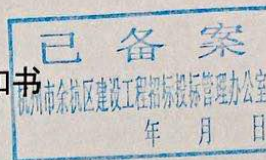 已备案
知书
杭州市余杭区建设工程招标投标管理办公室
年 月 日